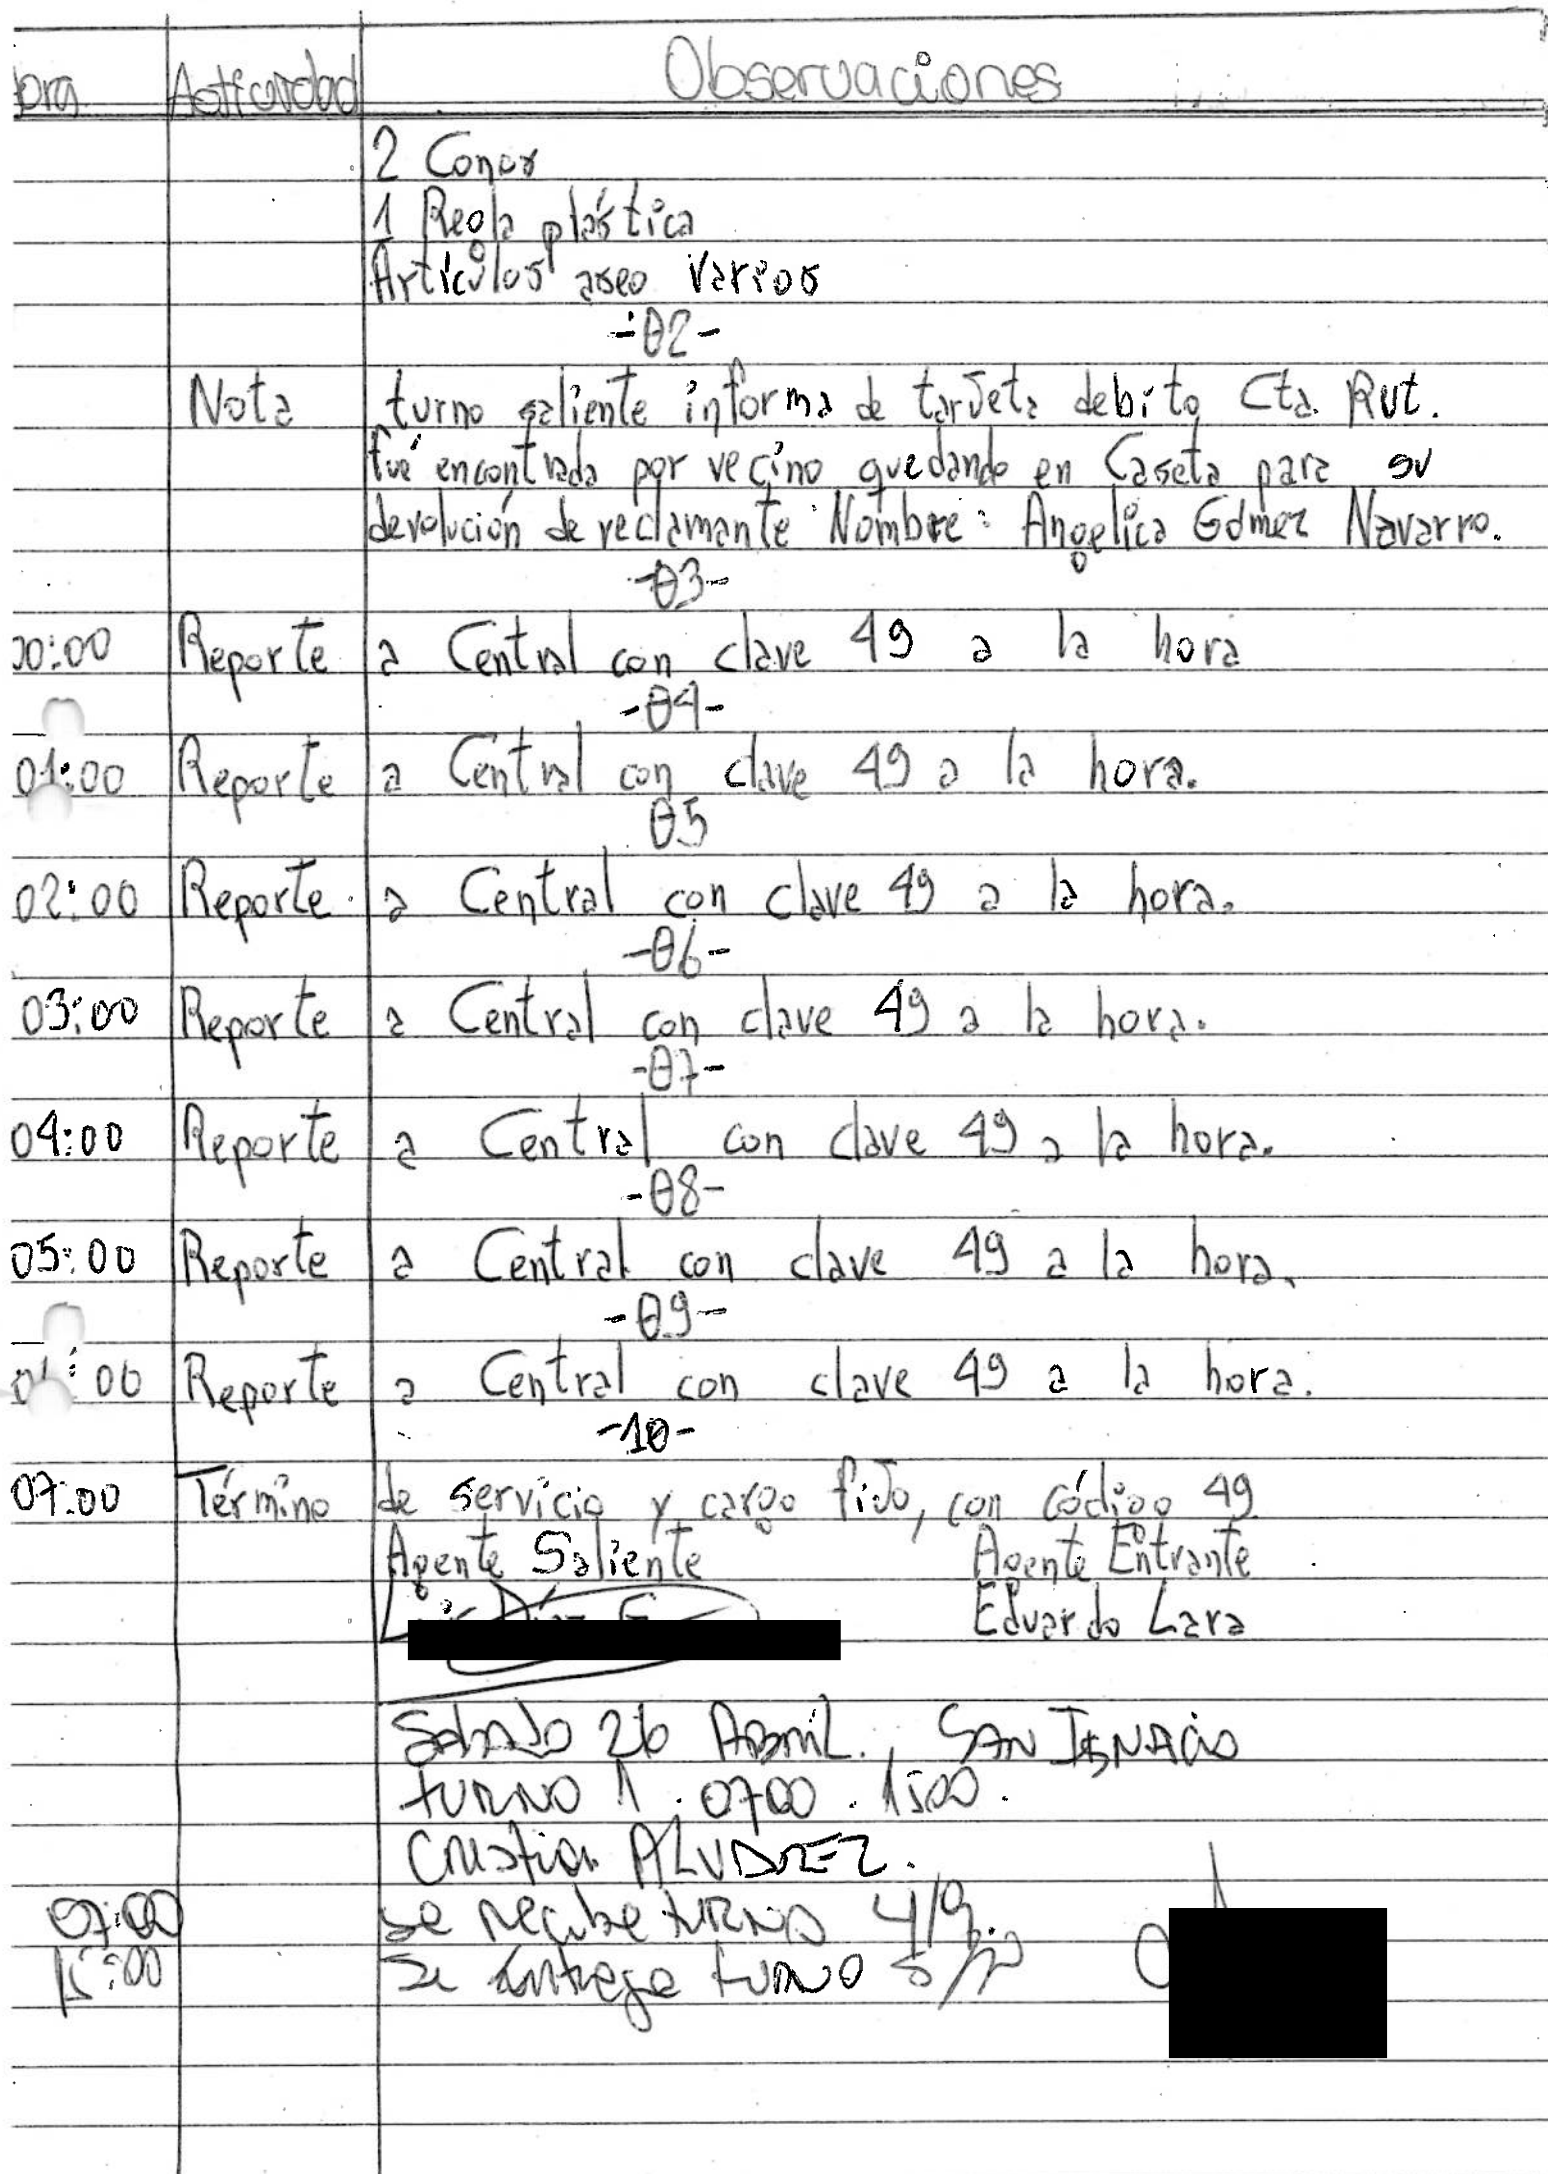 ora Actividad Observaciones
2 Conos
1 Regla plástica
Artículos aseo varios
-02-
Nota turno saliente informa de tarjeta debito Cta. Rut.
fué encontrada por vecino quedando en Caseta para su
devolución de reclamante Nombre: Angelica Gómez Navarro.
-03-
00:00 Reporte a Central con clave 49 a la hora
-04-
01:00 Reporte a Central con clave 49 a la hora.
05
02:00 Reporte a Central con clave 49 a la hora.
-06-
03:00 Reporte a Central con clave 49 a la hora.
-07-
04:00 Reporte a Central con clave 49 a la hora.
-08-
05:00 Reporte a Central con clave 49 a la hora.
-09-
:00 Reporte a Central con clave 49 a la hora.
-10-
07:00 Término de servicio y cargo fijo, con código 49
Agente Saliente Agente Entrante
Eduardo Lara
Sabado 26 Abril., San Ignacio
turno 1. 0700. 1500.
Cristian Alvarez.
07:00 se recibe turno 4/9.
15:00 Se entrega turno s/n